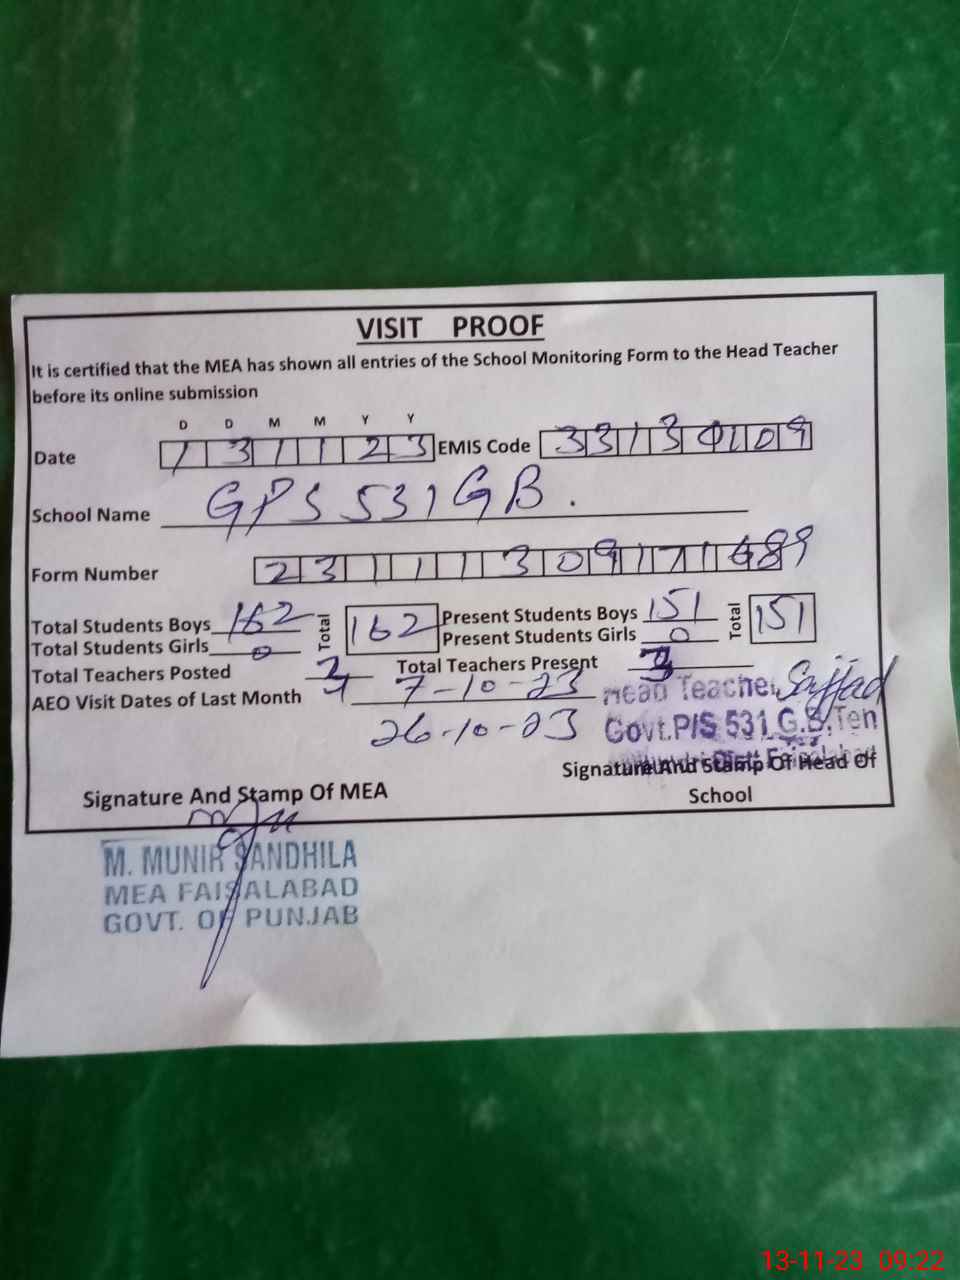 VISIT PROOF
It is certified that the MEA has shown all entries of the School Monitoring Form to the Head Teacher
before its online submission
D D M M Y Y
Date 1 3 1 1 2 3 EMIS Code 3 3 1 3 0 1 0 9
School Name GPS 531 GB.
Form Number 2 3 1 1 1 3 0 9 1 7 1 6 8 9
Total Students Boys 162 Total 162 Present Students Boys 151 Total 151
Total Students Girls 0 Present Students Girls 0
Total Teachers Posted Total Teachers Present 3
AEO Visit Dates of Last Month 7-10-23 Head Teacher Sajjad
26-10-23 Govt.P/S 531 G.B. Teh
Signature And Stamp Of Head Of
Signature And Stamp Of MEA School
M. MUNIR SANDHILA
MEA FAISALABAD
GOVT. OF PUNJAB
13-11-23 09:22